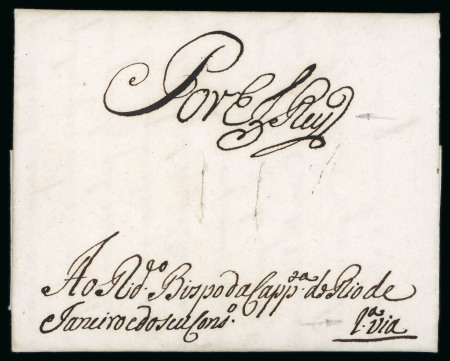 Por El Rey
Ao R.do Bispo da Capp.na de Rio de
Janeiro e do seu Cons.o
1.a via